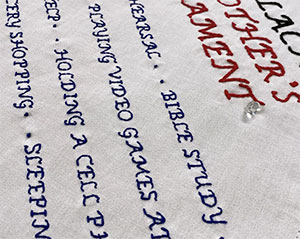 LAC
OTHER'S
AMENT
HEARSAL · · BIBLE STUDY
PLAYING VIDEO GAMES AT
EP · · HOLDING A CELL P
ERY SHOPPING · · SLEEPIN